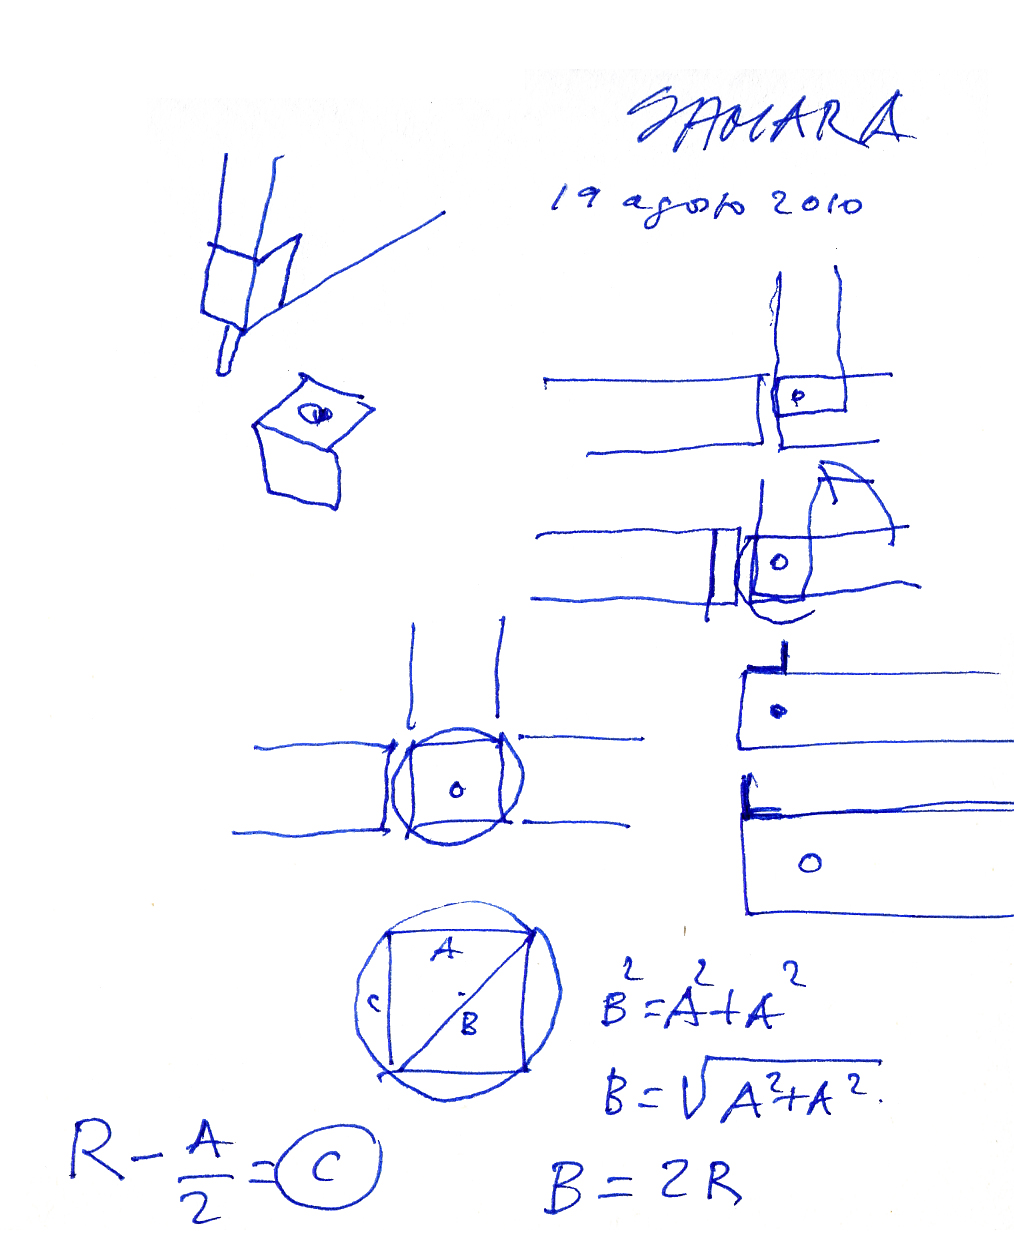 SAMARA
19 agosto 2010
A
C
B
B²=A²+A²
B=√A²+A².
R-A/2=C
B=2R